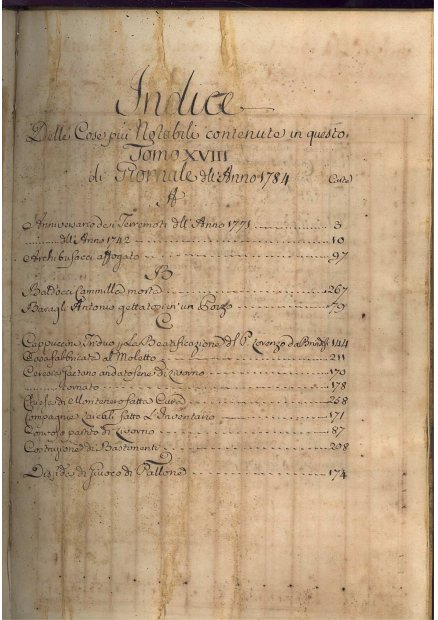 Indice
Delle Cose più Notabili contenute in questo
Tomo XVIII
di Giornale dell'Anno 1784
Carte
A
Anniversario dei Terremoti dell'Anno 1771 3
dell'Anno 1742 10
Archibusacci affogato 97
B
Baldocci Cammilla morta 267
Baragli Antonio gettatosi in un Pozzo 79
C
Cappuccini Triduo la Beatificazione del P. Lorenzo da 144
Casa fabbricata al Moletto 211
Gaetano andatosene di Livorno 170
tornato 178
Chiesa di Montenero fatta Cura 258
Compagnie fatto L'Inventario 171
Console partito di Livorno 87
Costruzione di Bastimenti 208
D
di Giuoco di Pallone 174